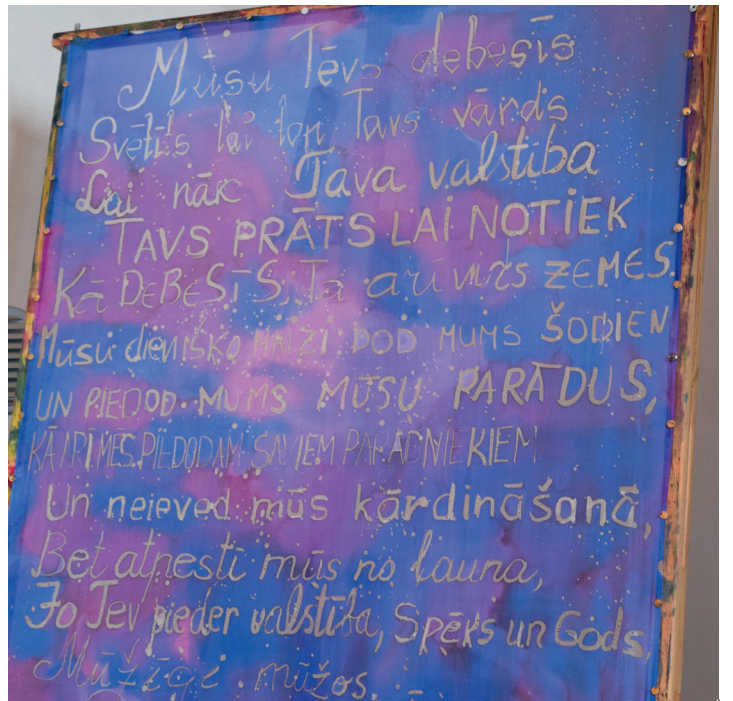 Mūsu Tēvs debesīs
Svētīts lai top Tavs vārds
Lai nāk Tava valstība
TAVS PRĀTS LAI NOTIEK
Kā DEBESĪS, Tā arī virs ZEMES.
Mūsu dienišķo MAIZI DOD MUMS ŠODIEN
UN PIEDOD MUMS MŪSU PARĀDUS,
KĀ ARĪ MĒS PIEDODAM SAVIEM PARĀDNIEKIEM
Un neieved mūs kārdināšanā,
Bet atpestī mūs no ļauna,
Jo Tev pieder valstība, Spēks un Gods,
Mūžīgi mūžos